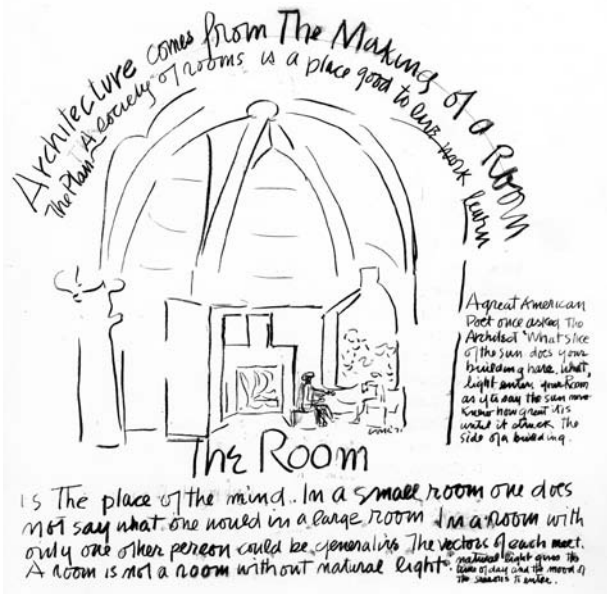 Architecture comes from The Making of a Room
The Plan A society of rooms is a place good to live work learn
A great American
Poet once asked The
Architect 'What slice
of the sun does your
building have, what
light enters your Room
as if to say the sun never
knew how great it is
until it struck the
side of a building.
The Room
is The place of the mind. In a small room one does
not say what one would in a large room In a room with
only one other person could be generative The vectors of each meet.
A room is not a room without natural light.
natural light gives the
time of day and the mood of
The seasons to enter.